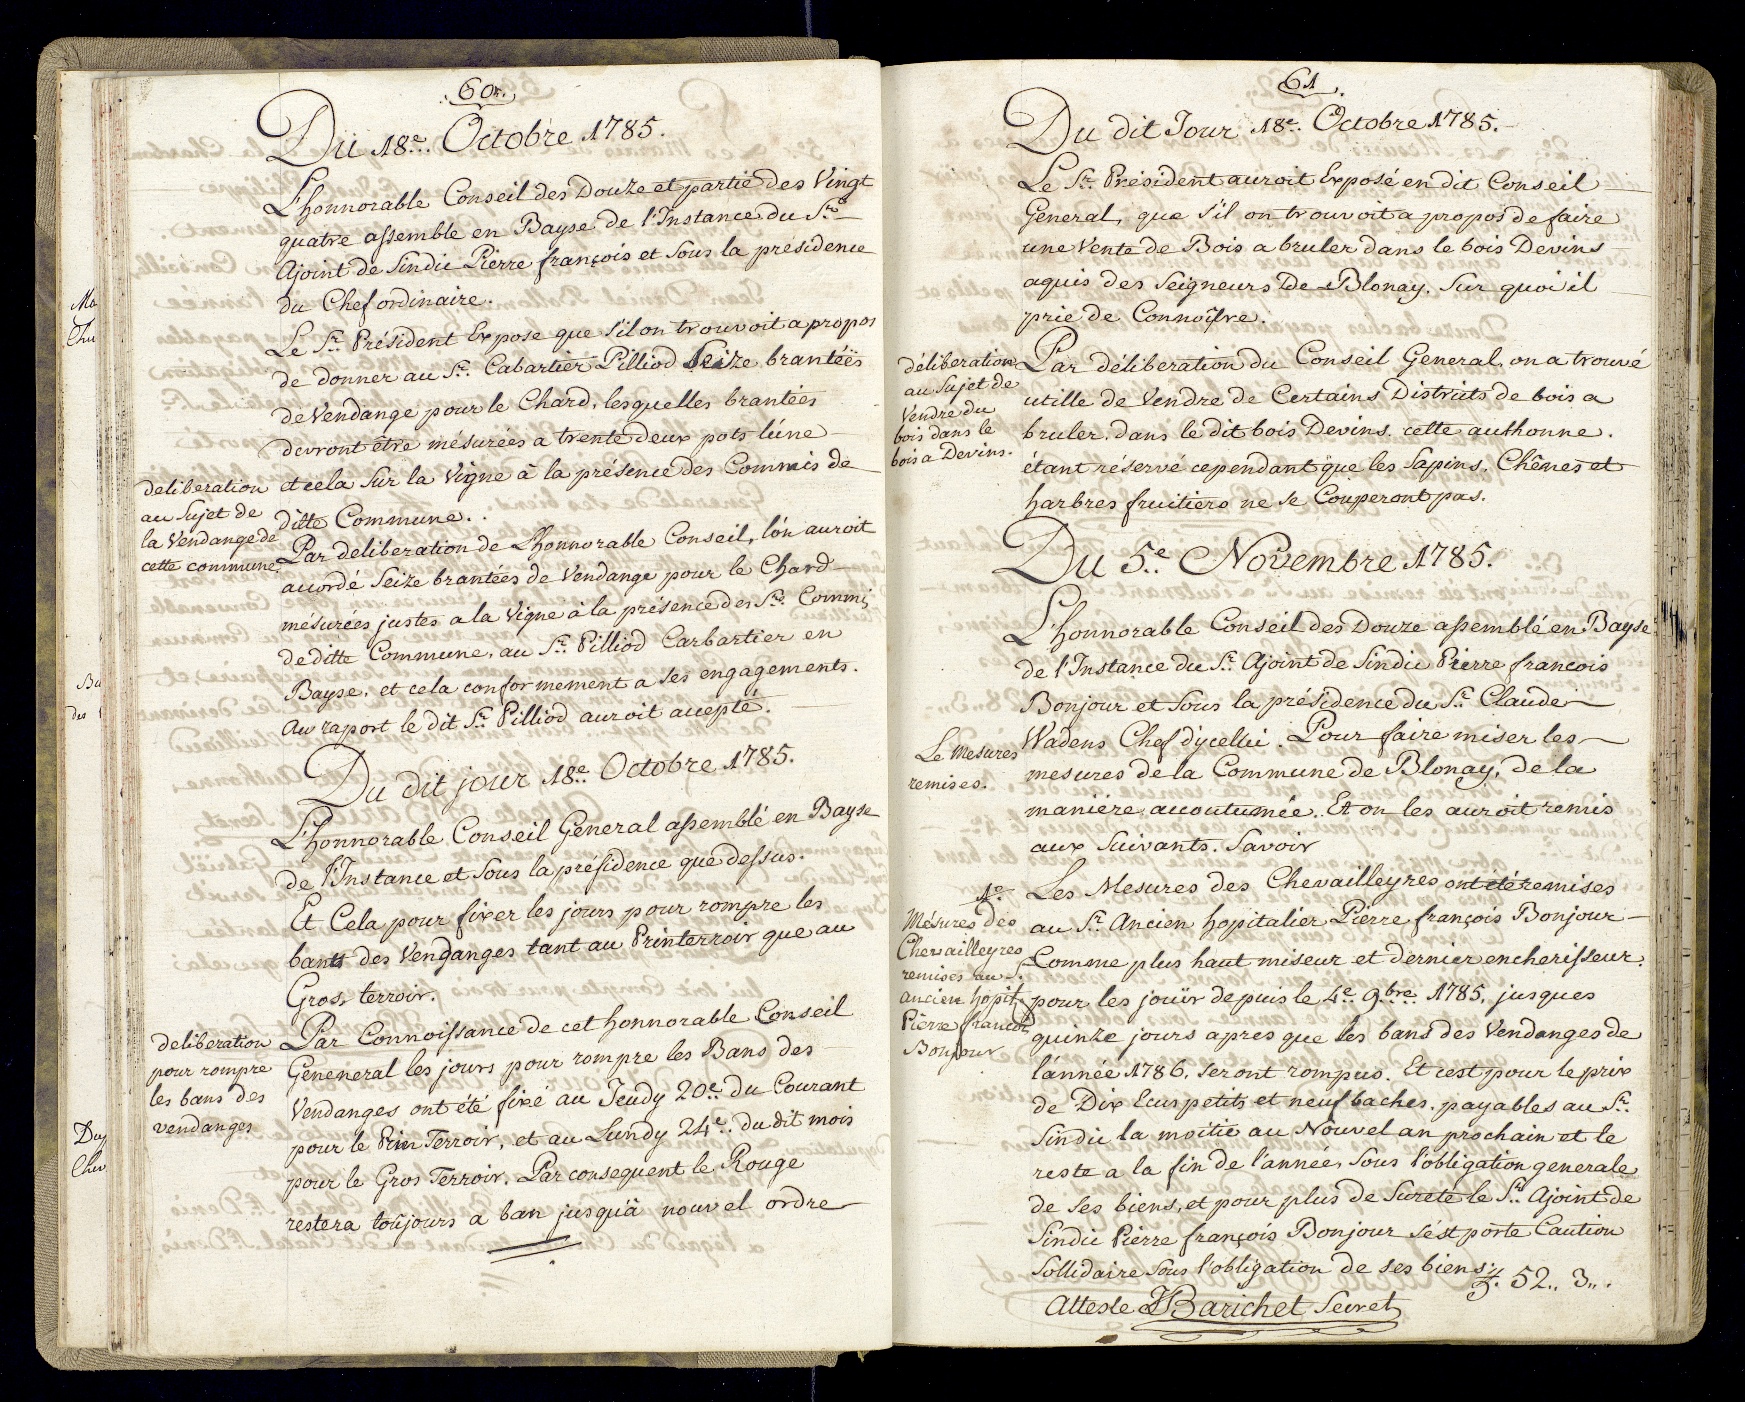 60.
Du 18e. Octobre 1785.
L'honnorable Conseil des Douze et partie des Vingt
quatre assemble en Bayse de l'Instance du Sr.
Ajoint de Sindic Pierre françois et sous la présidence
du Chef ordinaire.
Le Sr. Président Expose que s'il on trouvoit a propos
de donner au Sr. Cabartier Pilliod Seize brantéës
de Vendange pour le Chard, lesquelles brantées
devront être mésurées a trente deux pots l'úne
et cela sur la Vigne â la présence des Commis de
ditte Commune.
deliberation
au Sujet de
la Vendange de
cette commune.
Par deliberation de L'honnorable Conseil, l'ón auroit
acordé Seize brantées de Vendange pour le Chard
mésurées justes a la Vigne â la présence des Srs. Commis
de ditte Commune, au Sr. Pilliod Carbartier en
Bayse, et cela conformement a ses engagements.
Au raport le dit Sr. Pilliod auroit accepté.
Du dit jour 18e. Octobre 1785.
L'honnorable Conseil General assemblé en Bayse
de l'Instance et Sous la présidence que dessus.
Et Cela pour fixer les jours pour rompre les
bans des Vendanges tant au Printerroir que au
Gros, terroir.
deliberation
pour rompre
les bans des
vendanges
Par Connoissance de cet honnorable Conseil
Geneneral les jours pour rompre les Bans des
Vendanges ont été fixé au Jeudy 20e. du Courant
pour le Prin Terroir, et au Lundy 24e. du dit mois
pour le Gros Terroir. Par consequent le Rouge
restera toûjours a ban jusqu'â nouvel ordre
Ma
Chu
Ba
des
Du
Chu
61
Du dit Jour 18e. Octobre 1785.
Le Sr. Président auroit Exposé en dit Conseil
General, que s'il on trouvoit a propos de faire
une Vente de Bois a bruler dans le bois Devins
aquis des Seigneurs De Blonay. Sur quoi il
prie de Connoître.
déliberation
au Sujet de
Vendre du
bois dans le
bois a Devins.
Par déliberation du Conseil General, on a trouvé
utille de Vendre de Certains Districts de bois a
bruler, dans le dit bois Devins. cette authonne.
étant réservé cependant que les Sapins, Chênes et
harbres fruitiers ne se Couperont pas.
Du 5e. Novembre 1785.
L'honnorable Conseil des Douze assemblé en Bayse
de l'Instance du Sr. Ajoint de Sindic Pierre francois
Bonjour et Sous la présidence du Sr. Claude
Wadens Chef d'ycellui. Pour faire miser les
mesures de la Commune de Blonay, de la
maniére accoutumée. Et on les auroit remis
aux Suivants. Savoir
Le Mesures
remises.
1o.
Mésures des
Chevailleyres
remises au Sr.
ancien hopit.
Pierre francois
Bonjour
Les Mesures des Chevailleyres ont été remises
au Sr. Ancien hopitalier Pierre françois Bonjour
Comme plus haut miseur et dernier encherisseur
pour les jouïr depuis le 4e. 9bre. 1785. jusques
quinze jours apres que les bans des Vendanges de
l'année 1786. seront rompus. Et c'est pour le prix
de Dix Ecus petits et neuf baches, payables au Sr.
Sindic la moitie au Nouvel an prochain et le
reste a la fin de l'année, Sous l'obligation generale
de ses biens, et pour plus de Surete le Sr. Ajoint de
Sindic Pierre françois Bonjour s'ést porte Caution
Sollidaire Sous l'obligation de ses biens
52.. 3..
Atteste Barichet Secret.